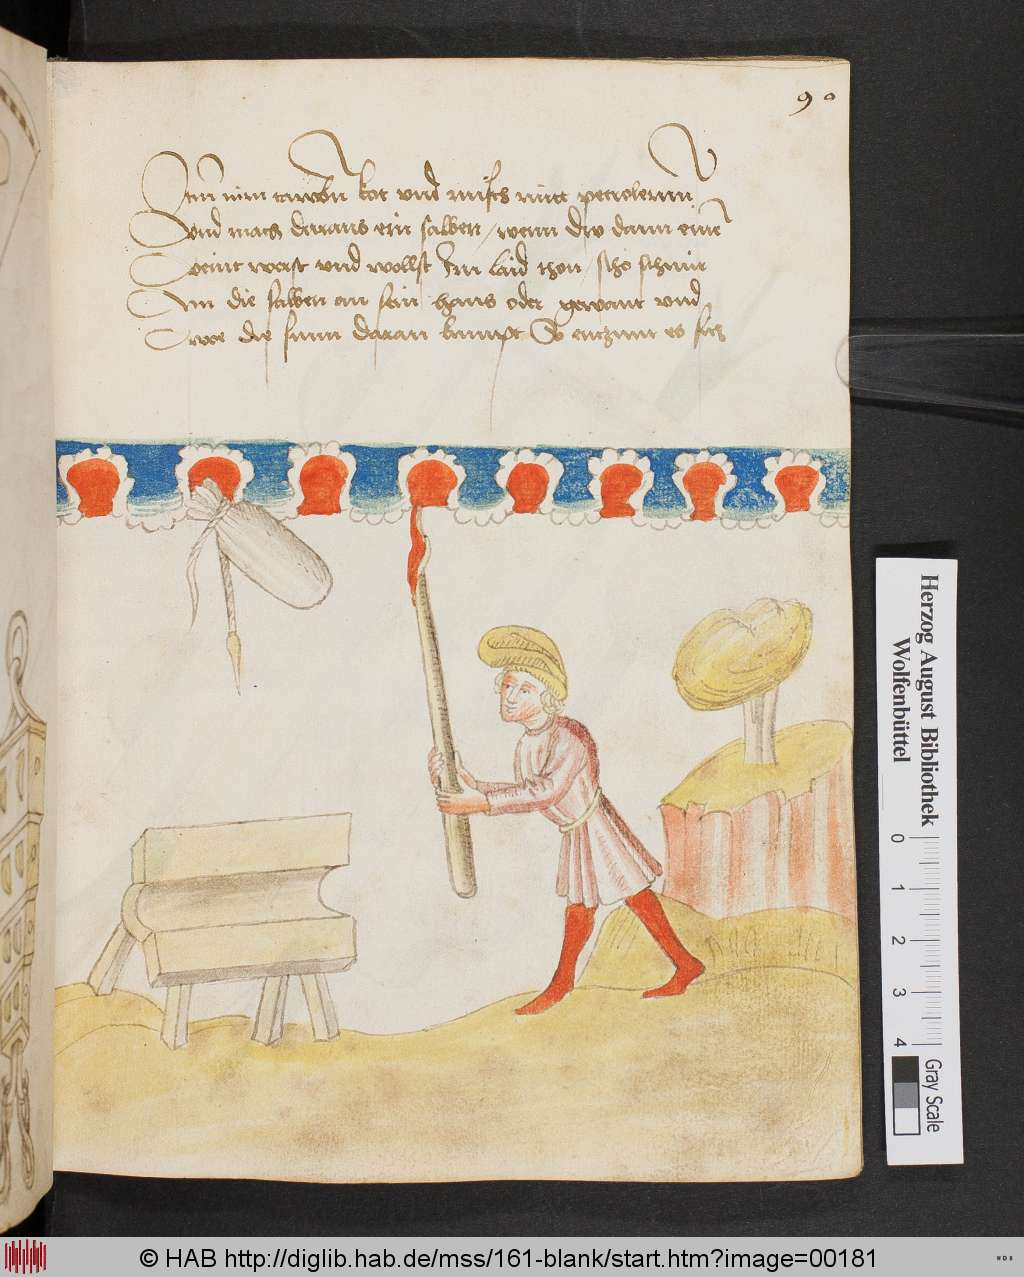 90
Item nim tawbn kot vnd misch mitt petroleum
Vnd mach daraus ein salben / wenn dw dann eine
veint waist vnd wollst Im laid thon / so schmir
Im die salben an sein haus oder gewant vnd
wo die sunn daran kumpt So entzunt es sich
Herzog August Bibliothek
Wolfenbüttel
0 1 2 3 4
Gray Scale
© HAB http://diglib.hab.de/mss/161-blank/start.htm?image=00181